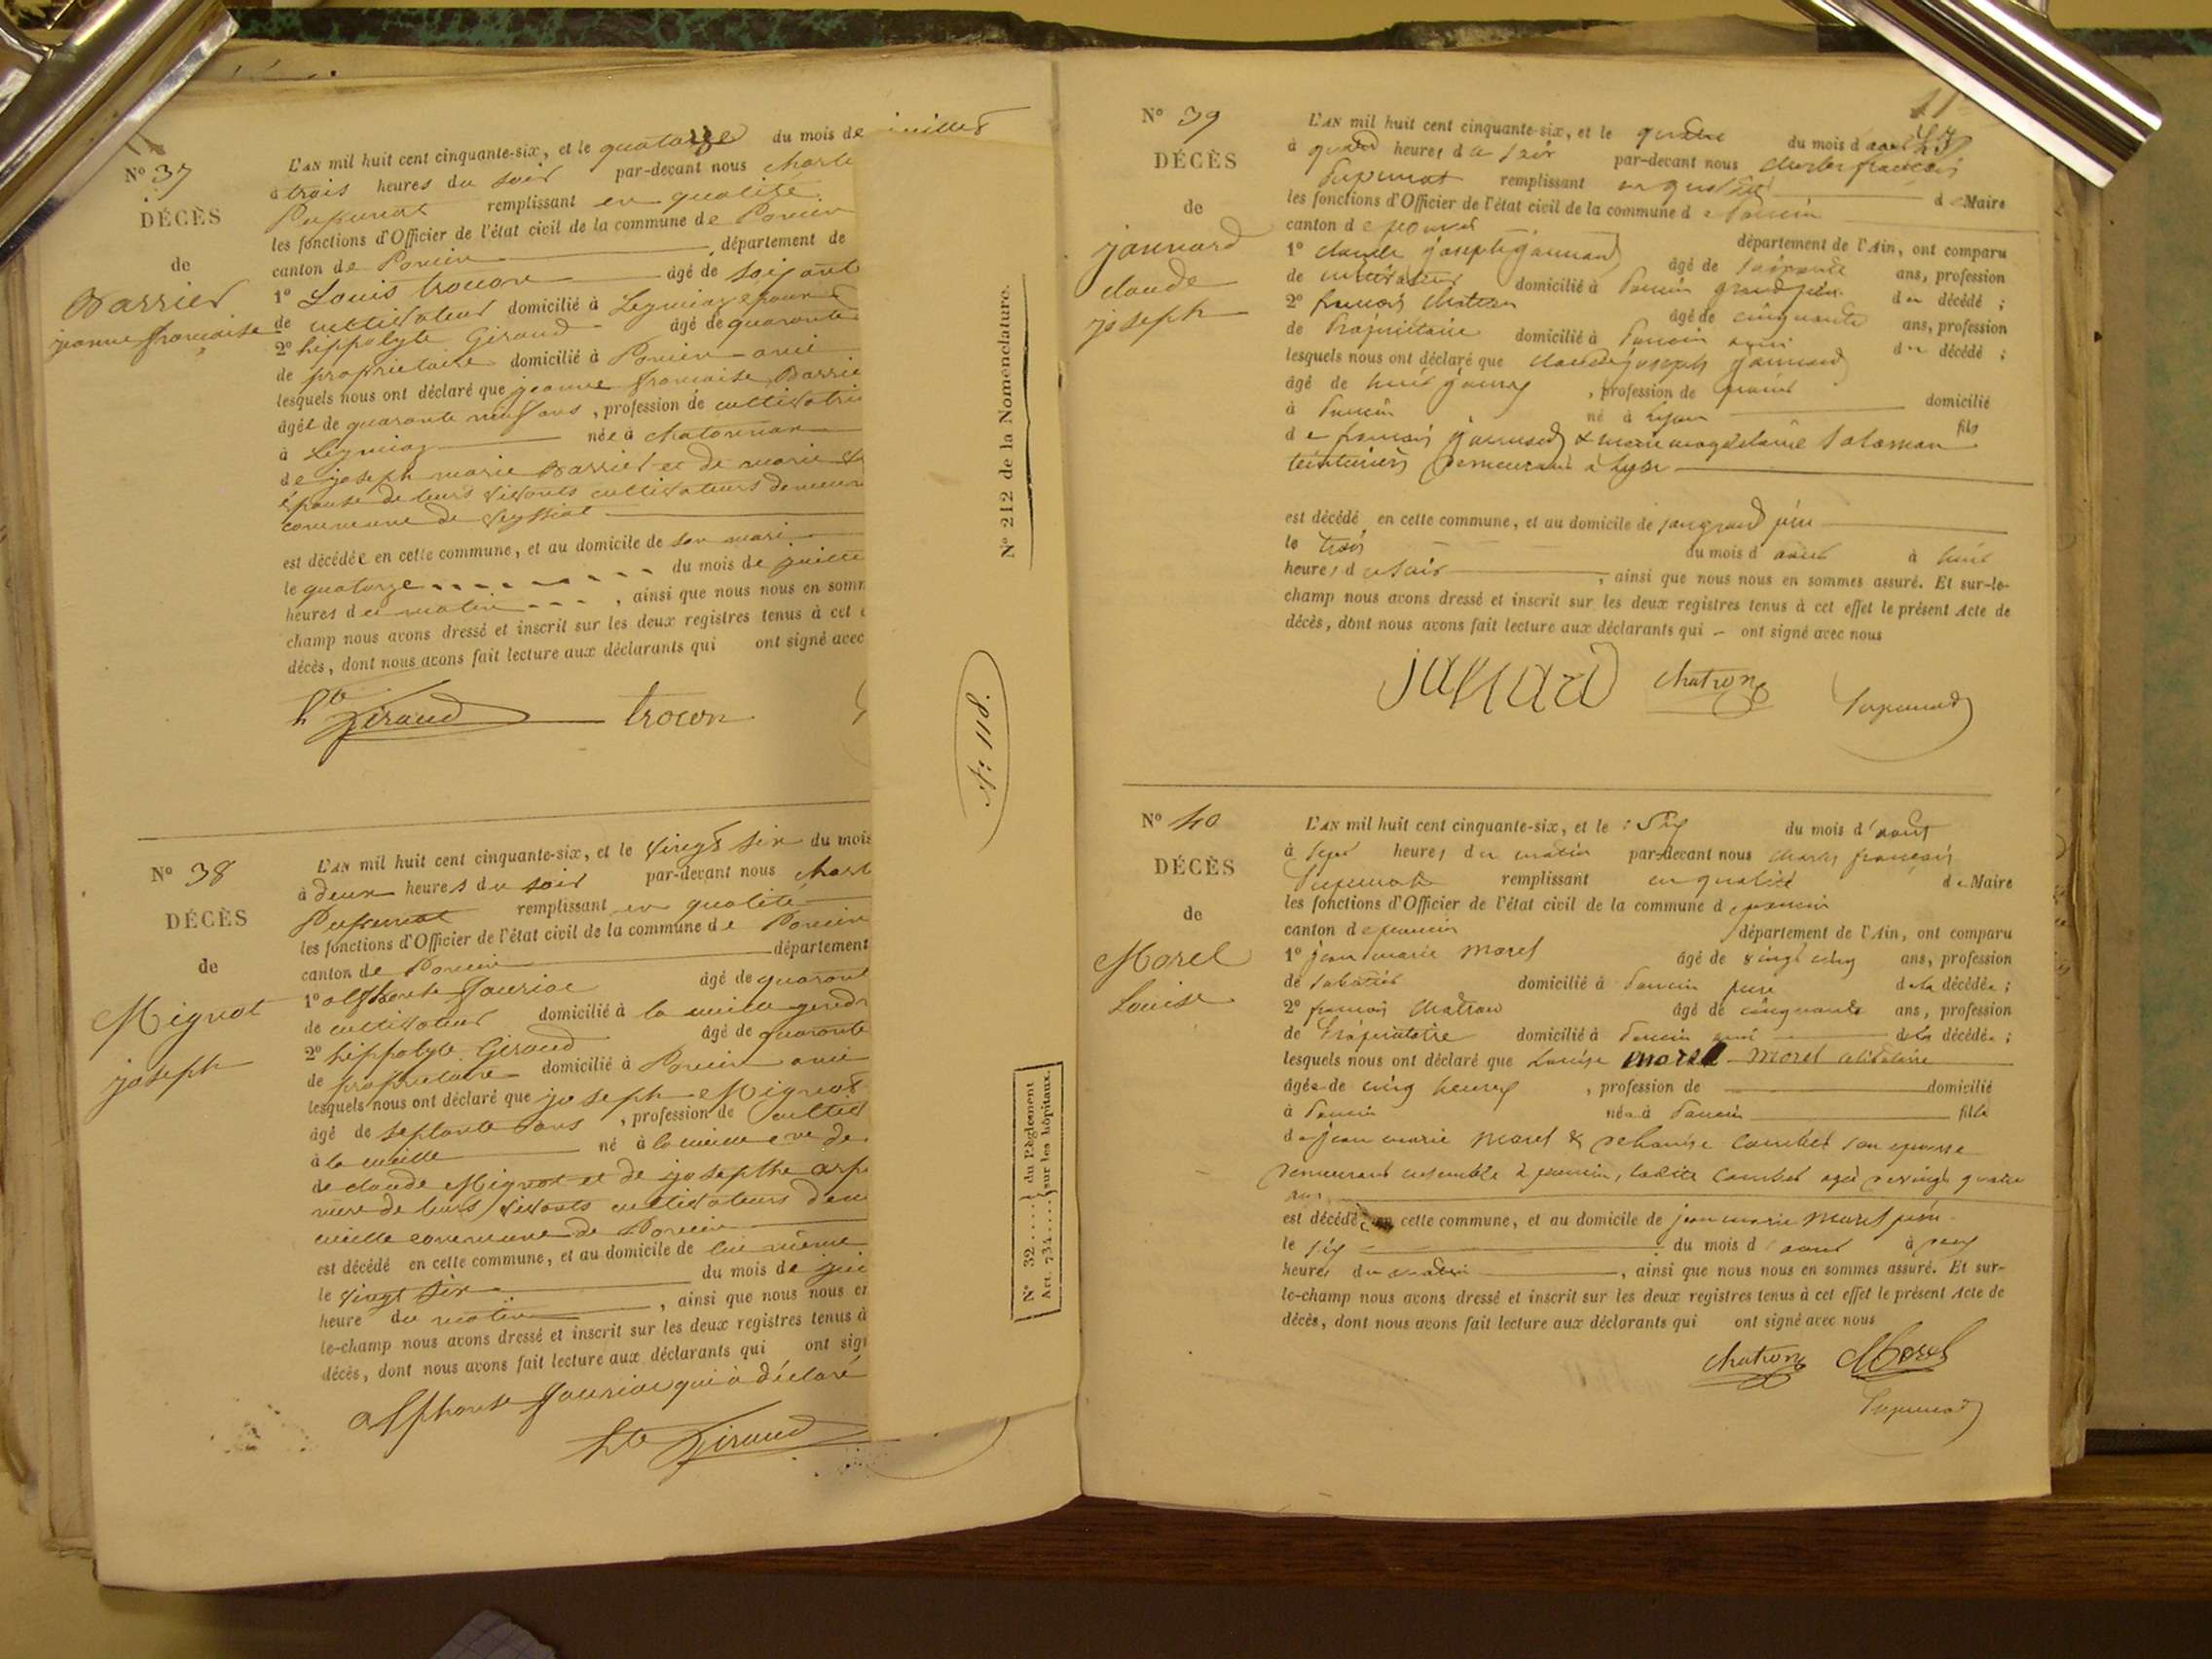 juillet
N° 37
DÉCÈS
de
Barrier
jeanne françoise
L'AN mil huit cent cinquante-six, et le quatorze du mois de
à trois heures du soir par-devant nous Charle
Pupunat remplissant en qualité
les fonctions d'Officier de l'état civil de la commune de Poncin
canton de Poncin département de
1° Louis trocon âgé de soixant
de cultivateur domicilié à Leymiaz epoux
2° hippolyte Giraud âgé de quarante
de propriétaire domicilié à Poncin ami
lesquels nous ont déclaré que jeanne françoise Barrie
âgée de quarante neuf ans, profession de cultivatri
à Leymiaz née à chatonnax
de joseph marie Barrier et de marie
épouse de leurs vivants cultivateurs demeur
commune de
est décédée en cette commune, et au domicile de son mari
le quatorze du mois de juille
heures du matin, ainsi que nous nous en somm
champ nous avons dressé et inscrit sur les deux registres tenus à cet e
décès, dont nous avons fait lecture aux déclarants qui ont signé avec
hte Giraud trocon
N° 38
DÉCÈS
de
Mignot
joseph
L'AN mil huit cent cinquante-six, et le vingt six du mois
à deux heures du soir par-devant nous charl
Pupunat remplissant en qualité
les fonctions d'Officier de l'état civil de la commune de Poncin
canton de Poncin département
1° alphonse Sauriac âgé de quarant
de cultivateur domicilié à la cueille gendr
2° hippolyte Giraud âgé de quarante
de propriétaire domicilié à Poncin ami
lesquels nous ont déclaré que joseph Mignot
âgé de septante ans, profession de cultiv
à la cueille né à la cueille de
de claude Mignot et de josephte
de leurs vivants cultivateurs dem
cueille commune de Poncin
est décédé en cette commune, et au domicile de lui même
le vingt six du mois de jui
heure du matin, ainsi que nous nous en
le-champ nous avons dressé et inscrit sur les deux registres tenus à
décès, dont nous avons fait lecture aux déclarants qui ont sign
alphonse Sauriac qui a déclaré
hte Giraud
N° 212 de la Nomenclature.
N° 118.
N° 32 .... } du Règlement
Art. 734 .... } sur les hôpitaux.
N° 39
DÉCÈS
de
jannard
claude
joseph
L'AN mil huit cent cinquante-six, et le quatre du mois d'aout
à quatre heures du soir par-devant nous charles françois
Pupunat remplissant en qualité de Maire
les fonctions d'Officier de l'état civil de la commune de Poncin
canton de poncin département de l'Ain, ont comparu
1° claude joseph jannard âgé de soixante ans, profession
de cultivateur domicilié à Poncin grand père du décédé ;
2° françois chatron âgé de cinquante ans, profession
de Propriétaire domicilié à Poncin ami du décédé ;
lesquels nous ont déclaré que claude joseph jannard
âgé de huit jours, profession de domicilié
à Poncin né à Lyon fils
de françois jannard & marie magdelaine
teinturiers demeurant à Lyon
est décédé en cette commune, et au domicile de son grand père
le trois du mois d'aout à huit
heures du soir, ainsi que nous nous en sommes assuré. Et sur-le-
champ nous avons dressé et inscrit sur les deux registres tenus à cet effet le présent Acte de
décès, dont nous avons fait lecture aux déclarants qui ont signé avec nous
chatron Pupunat
N° 40
DÉCÈS
de
Morel
Louise
L'AN mil huit cent cinquante-six, et le six du mois d'aout
à sept heures du matin par-devant nous charles françois
Pupunat remplissant en qualité de Maire
les fonctions d'Officier de l'état civil de la commune de poncin
canton de poncin département de l'Ain, ont comparu
1° jean marie morel âgé de vingt cinq ans, profession
de sabotier domicilié à Poncin pere de la décédée ;
2° françois chatron âgé de cinquante ans, profession
de Propriétaire domicilié à Poncin ami de la décédée ;
lesquels nous ont déclaré que Louise morel
âgée de cinq heures, profession de domicilié
à Poncin née à Poncin fille
de jean marie morel & combet son epouse
demeurant ensemble à poncin, ladite combet agée de vingt quatre
ans
est décédée en cette commune, et au domicile de jean marie morel père
le six du mois d'aout à
heures du matin, ainsi que nous nous en sommes assuré. Et sur-
le-champ nous avons dressé et inscrit sur les deux registres tenus à cet effet le présent Acte de
décès, dont nous avons fait lecture aux déclarants qui ont signé avec nous
chatron Morel
Pupunat